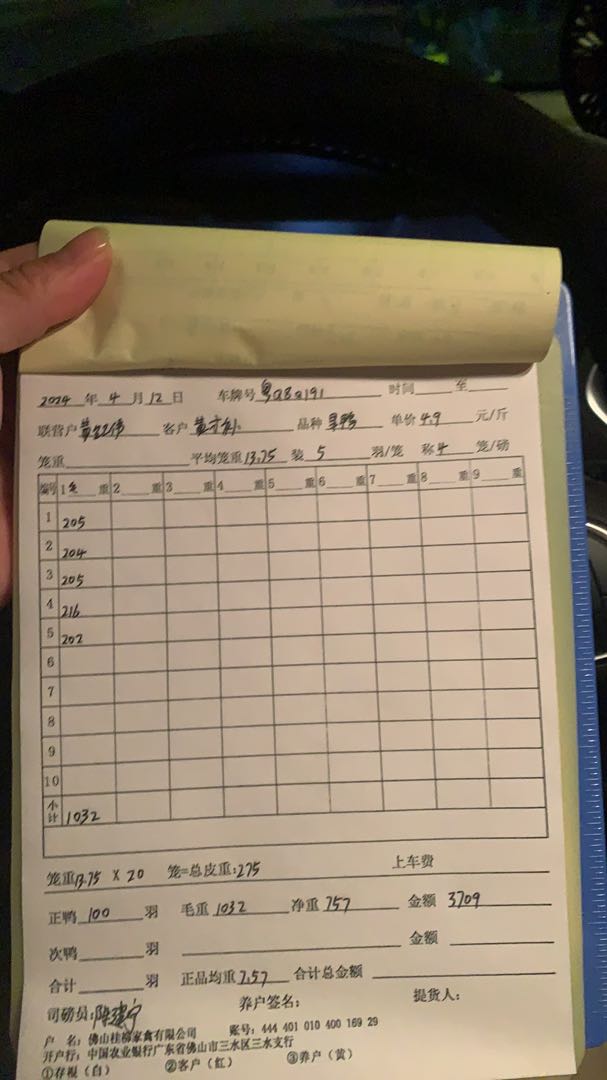 2024 年 4 月 12 日 车牌号 粤Q8Q191 时间 至
联营户 客户 品种 单价 4.9 元/斤
笼重 平均笼重 13.75 装 5 羽/笼 称 4 笼/磅
编号 1 重 2 重 3 重 4 重 5 重 6 重 7 重 8 重 9 重
1 205
2 204
3 205
4 216
5 202
6
7
8
9
10
小计 1032
笼重 13.75 X 20 笼=总皮重: 275 上车费
正鸭 100 羽 毛重 1032 净重 757 金额 3709
次鸭 羽 金额
合计 羽 正品均重 7.57 合计总金额
司磅员: 养户签名: 提货人:
户 名: 佛山桂柳家禽有限公司 账号: 444 401 010 400 169 29
开户行: 中国农业银行广东省佛山市三水区三水支行
①存根（白） ②客户（红） ③养户（黄）